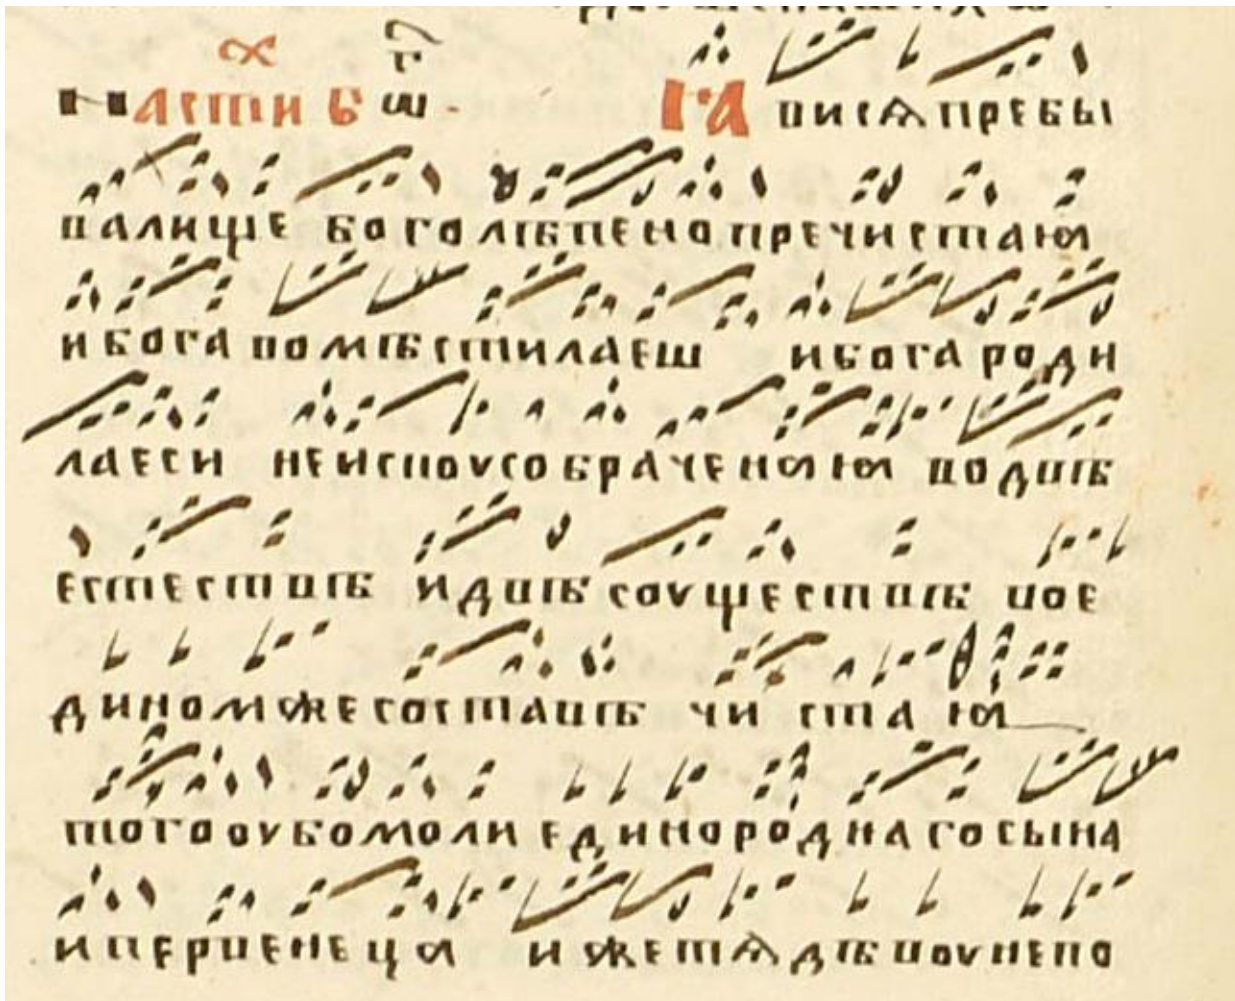 настиⷯв ѿ · ꙗвисѧ пребы
валище боголѣпено пречистаꙗ
и бога вомѣстилаеш и бога роди
лаеси неискоусобраченаꙗ во двѣ
естествѣ и двѣ соуществѣ во е
диномже составѣ чистаꙗ
того оубо моли единороднаго сына
и первенеца иже тѧ дѣвоу непо